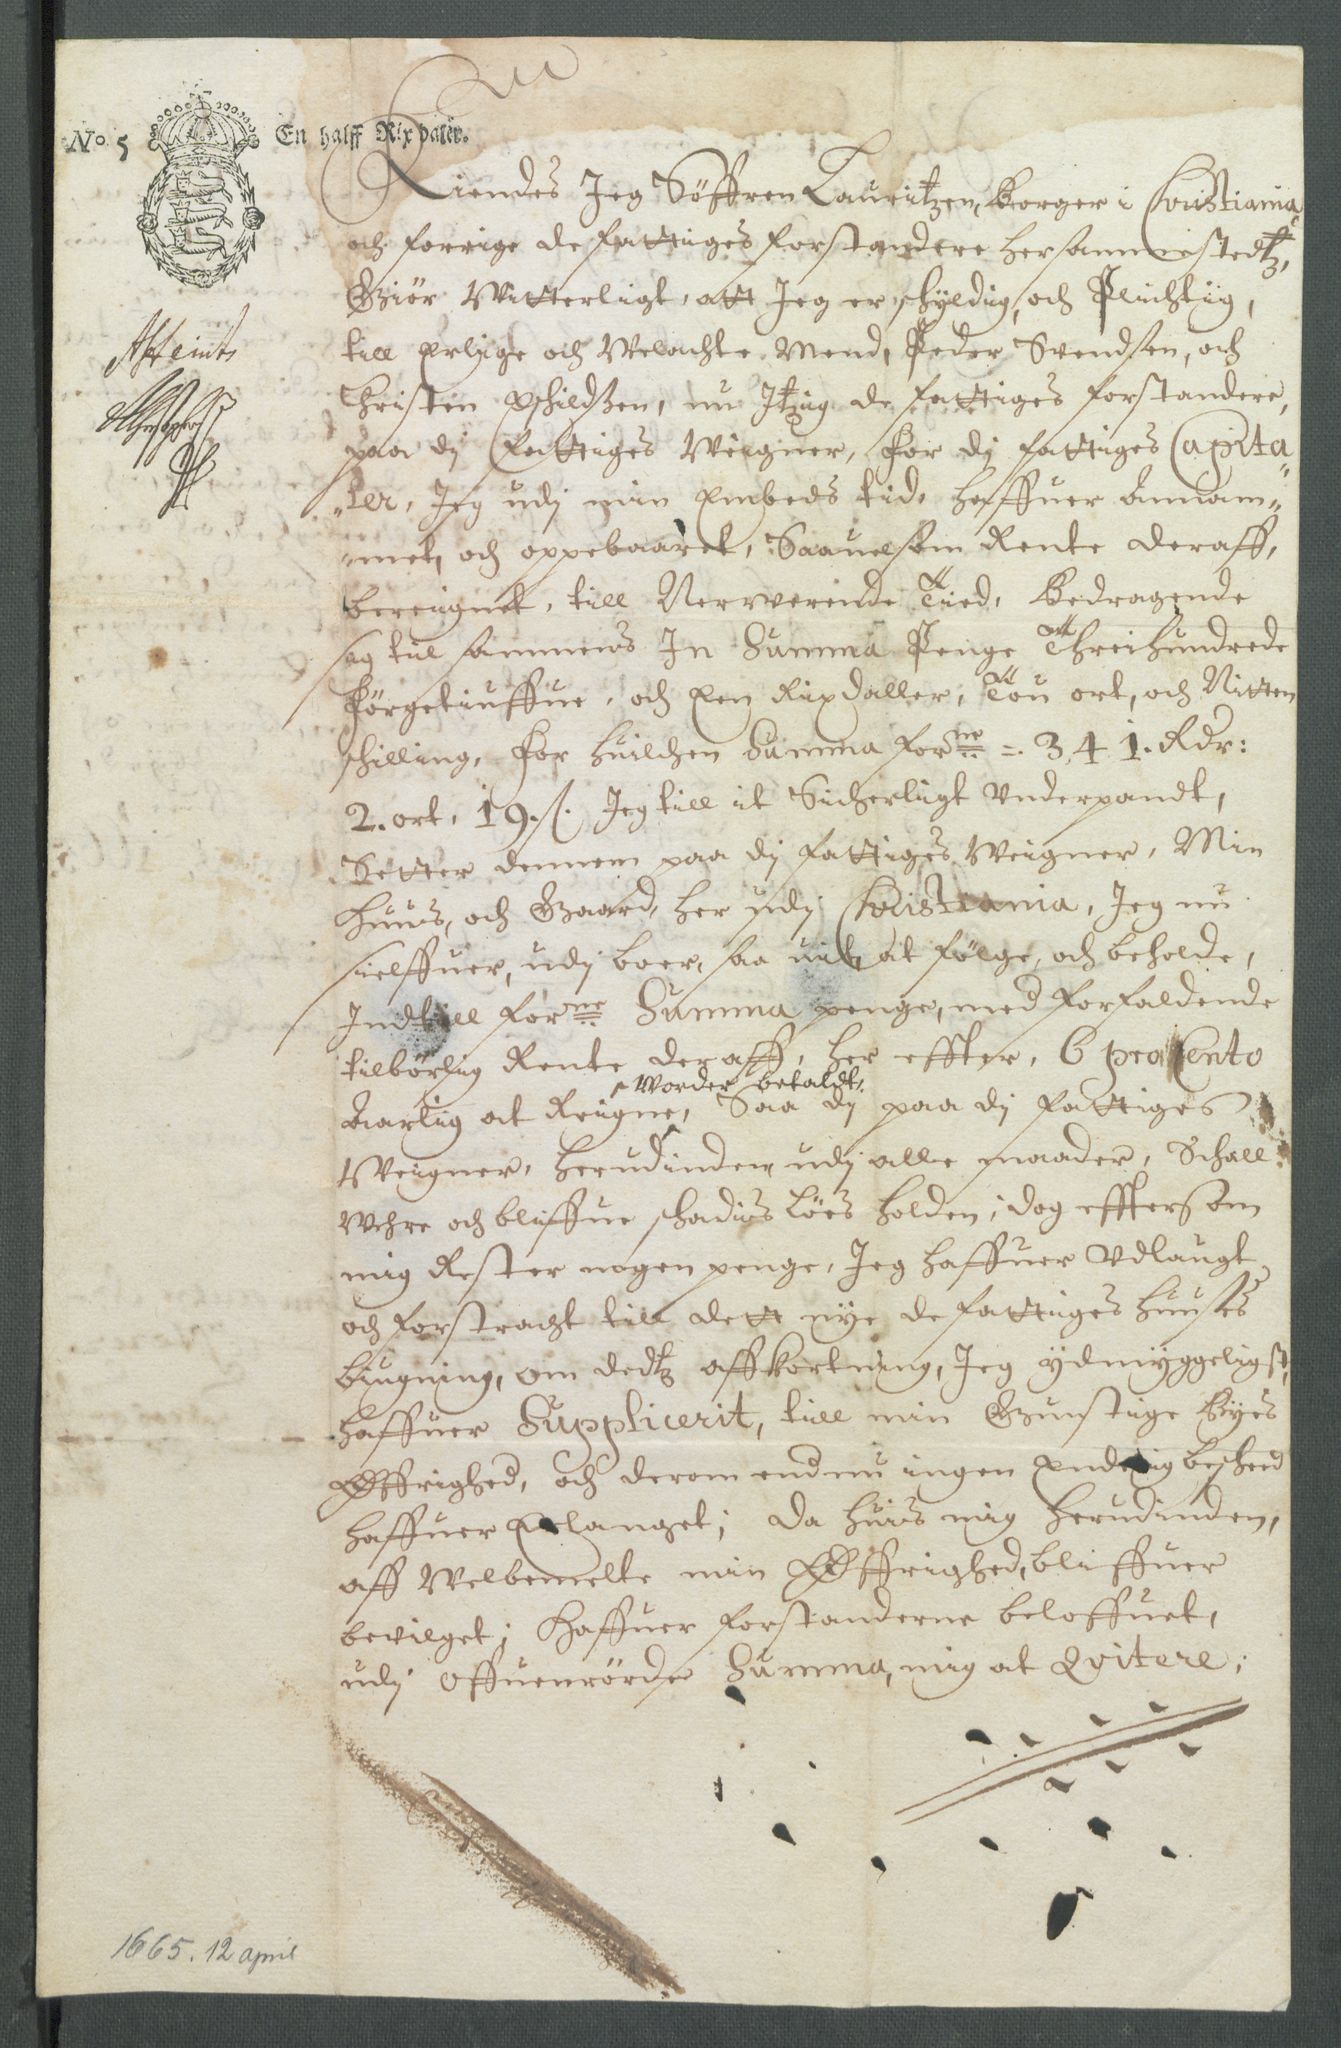 No 5 En halff Rixdaler.
Kiendes Jeg Söffren Lauritzen, Borger i Christiania
och forrige de fattiges forstandere hersammestedtz,
Giör Witterligt, att Jeg er schyldig, och Plichtiig,
till Erlige och Welachte Mend, Peder Svendsen, och
Christen Eschildzen, nu Jtzig de fattiges forstandere,
paa dj fattiges Weigner, for dj fattiges Capita
"ler, Jeg udj min Embeds tid, haffuer Annam"
"met, och oppebaaret, Saauelsom Rente deraff,
bereignet, till Nerwerende Tied, Bedragende
sag till sammens In Summa Penge Threihundrede
förgetiuffue, och Een Rixdaller, Tou ort, och Nitten
schilling, for huilchen Summa forne =. 341. Rdr:
2. ort, 19. s. Jeg till it Sicherligt Vnderpandt,
Setter dennem paa dj fattiges Weigner, Min
Huus, och Gaard, her udj Christiania, Jeg nu
sielffuer, udj boer, saa uit at følge, och beholde,
Indtill forne Summa penge, med forfaldende
tilbörlig Rente deraff, her effter, 6 pro Cento
Worder betaldt.
Aarlig at Reigne, Saa dj paa dj fattiges
Weigner, herudinden udj alle maader, Schall
Wehre och bliffue schadislöes holden; dog efftersom
mig Rester nogen penge, Jeg haffuer Vdlaugt
och forstracht till dett nÿe de fattiges huuses
biugning, om dedtz affkortning, Jeg ÿdmÿggeligst,
haffuer Supplicerit, till min Gunstige Byes
Øffrighed, och derom endnu ingen Endelig bescheed
haffuer Erlanget; da huis mig herudinden,
aff Welbemelte min Øffrighed, bliffuer
bevilget; haffuer forstanderne beloffuet,
udj offuenrörde Summa, mig at Qvitere;
1665. 12 april